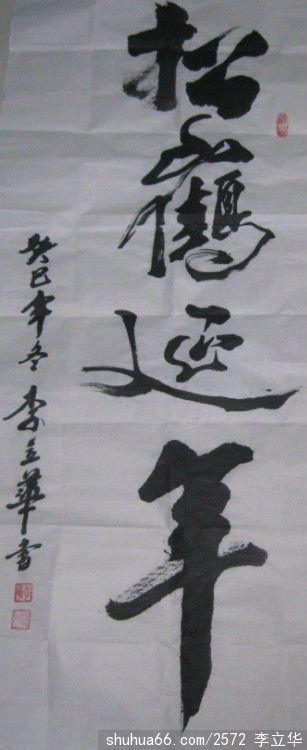 松鶴延年
癸巳年冬 李立華書
shuhua66.com/2572 李立华